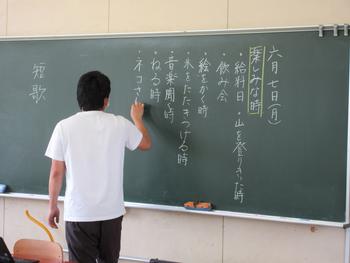 六月七日(月)
楽しみな時
・給料日 ・山を登りきった時
・飲み会
・絵をかく時
・氷をたたきつける時
・音楽聞く時
・ねる時
・ネコさ
短歌